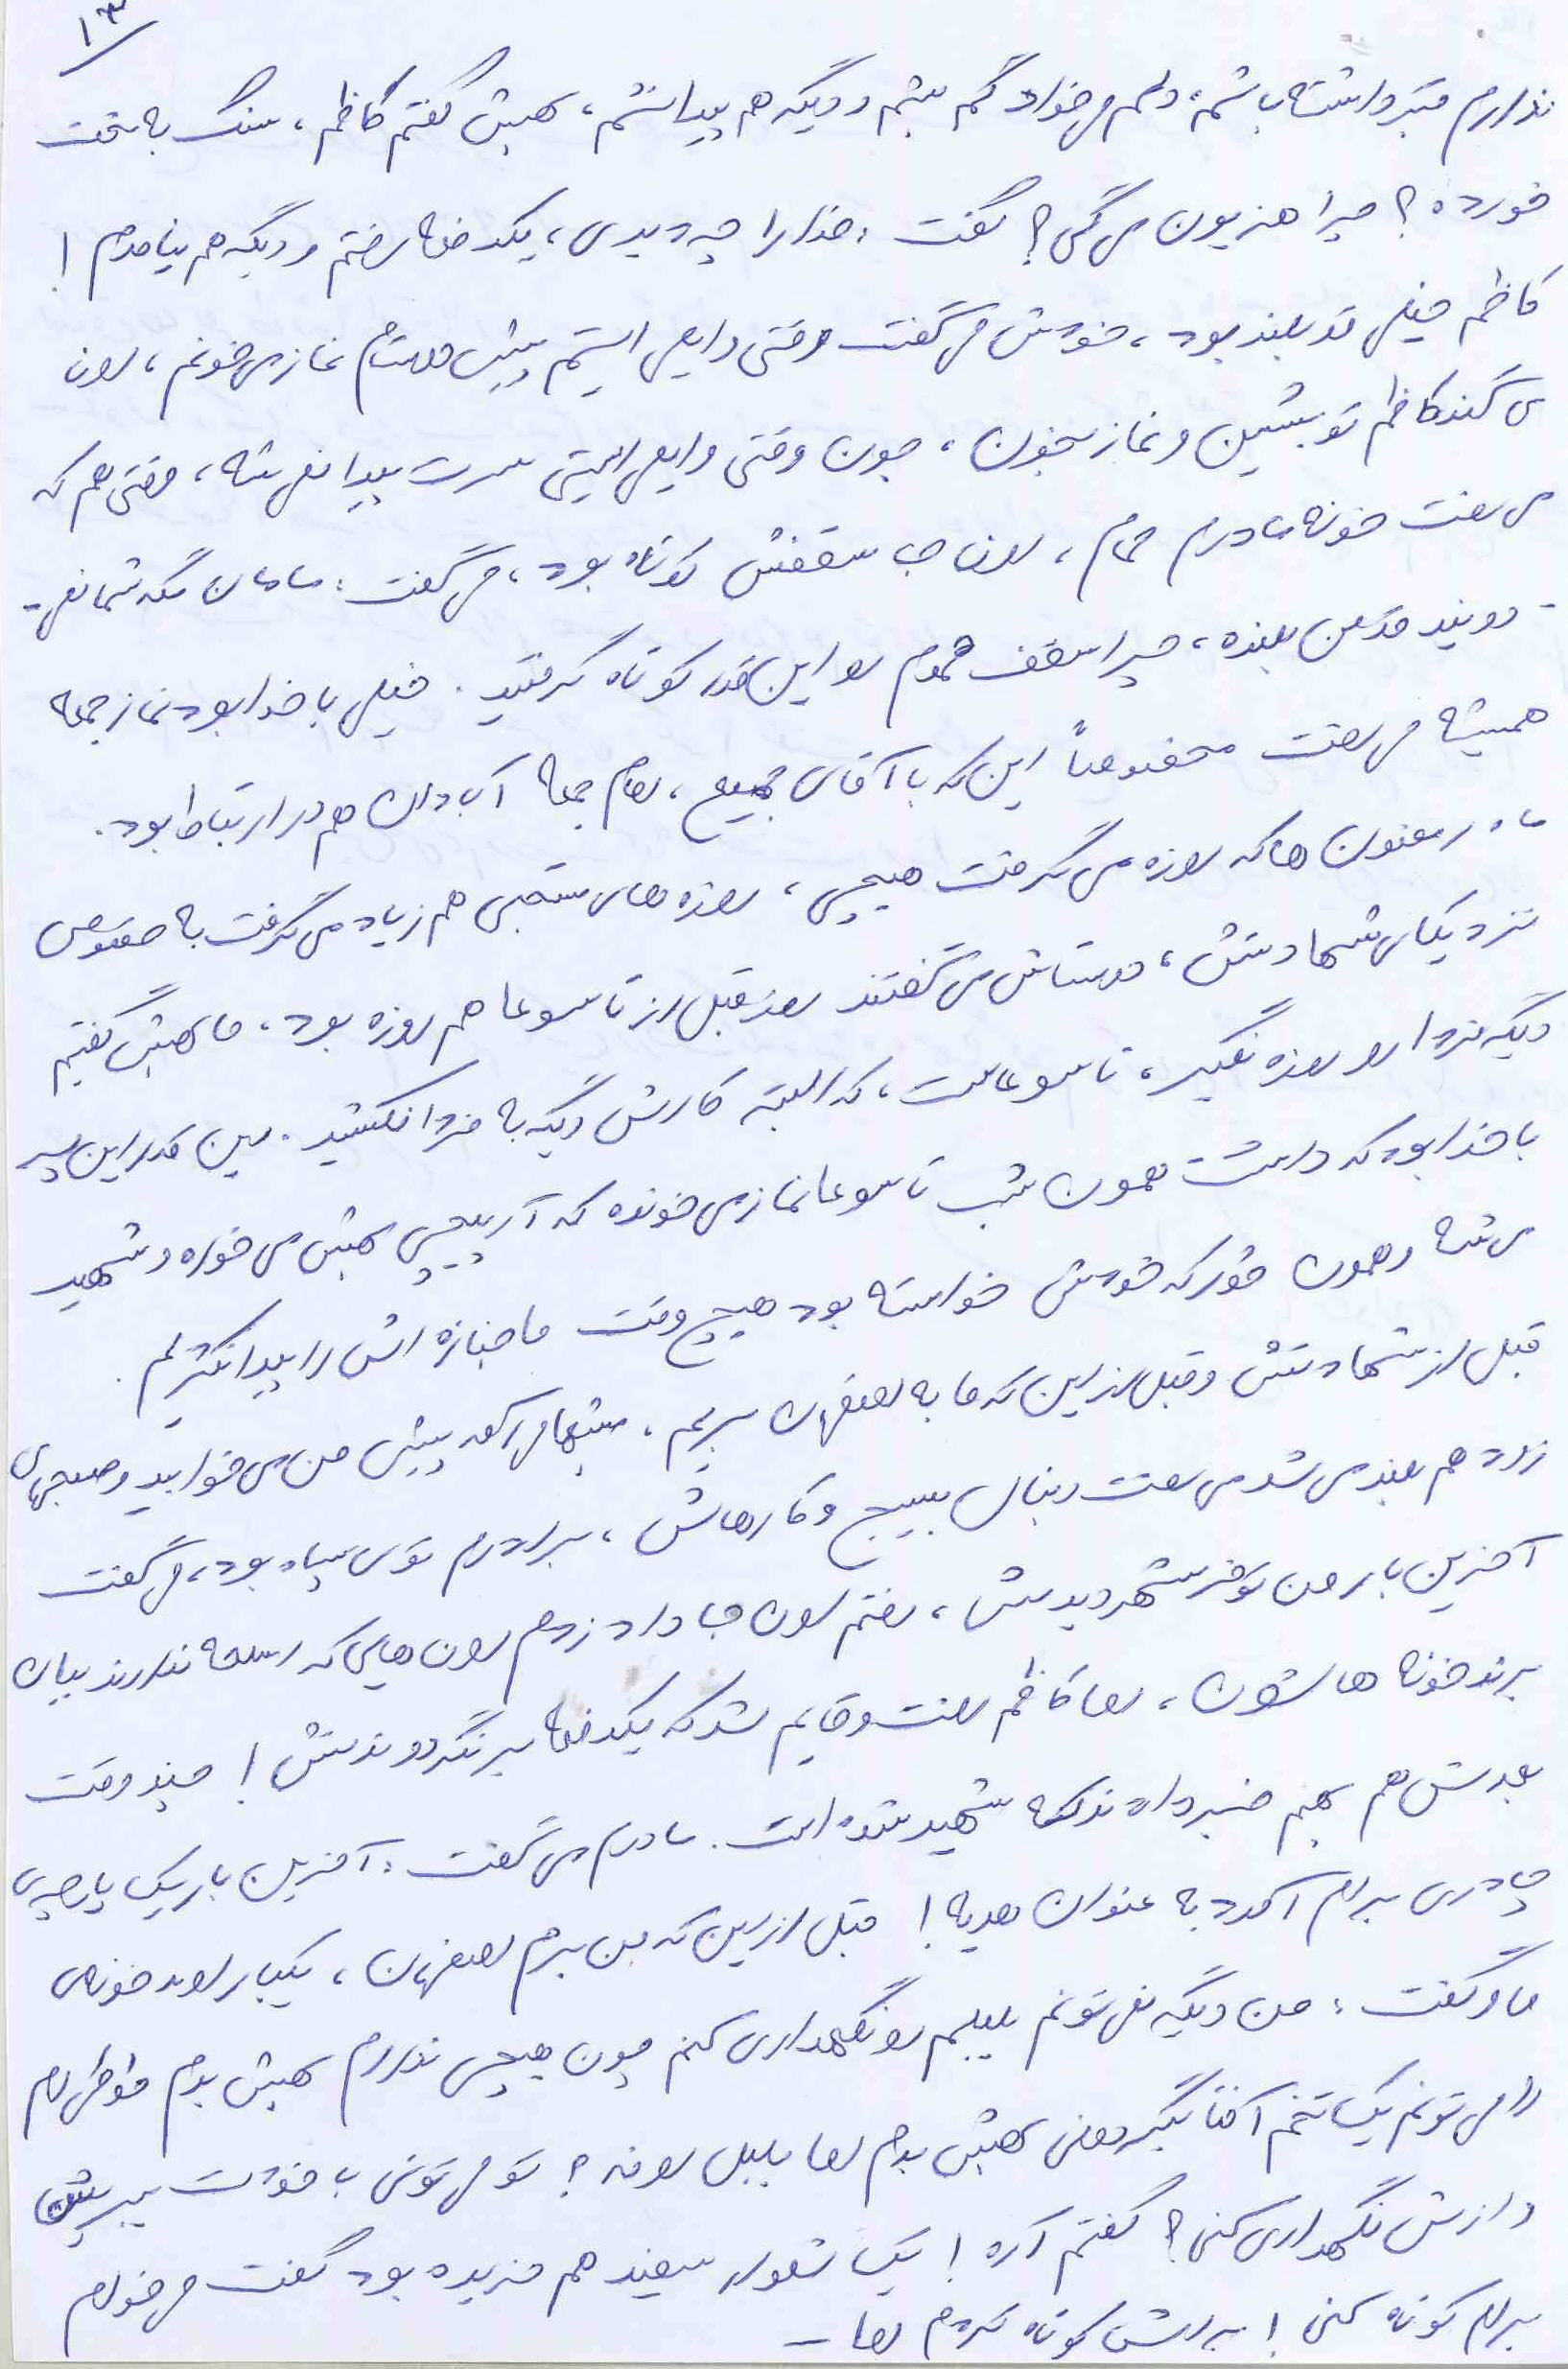 ۱۳
ندارم قبر داشته باشم، دلم می‌خواد گم بشم و دیگه هم پیدا نشم، بهش گفتم کاظم، سنگ به تخت
خورده؟ چرا هذیون می‌گی؟ گفت: خدا را چه دیدی، یکدفعه رفتم و دیگه هم نیامدم!
کاظم خیلی قد بلند بود، خودش می‌گفت وقتی وایمی‌ایستم پیش دوستام نماز می‌خونم، اونا
می‌گند کاظم تو بشین و نماز بخون، چون وقتی وایمی‌ایستی سرت پیدا نمی‌شه، وقتی هم که
می‌رفت خونه مادرم حمام، اون جا سقفش کوتاه بود، می‌گفت: مامان مگه شما نمی‌-
- دونید قد من بلنده، چرا سقف حموم رو این قدر کوتاه گرفتید. خیلی با خدا بود نماز جمعه
همیشه می‌رفت مخصوصاً این که با آقای جمی، امام جمعه آبادان هم در ارتباط بود.
ماه رمضون ها که روزه می‌گرفت هیچی، روزه های مستحبی هم زیاد می‌گرفت به خصوص
نزدیکای شهادتش، دوستاش می‌گفتند روز قبل از تاسوعا هم روزه بود، ما بهش گفتیم
دیگه فردا رو روزه نگیر، تاسوعاست، که البته کارش دیگه به فردا نکشید. این قدر این پسر
با خدا بود که داشت همون شب تاسوعا نماز می‌خونده که آرپیچی بهش می‌خوره و شهید
می‌شه و همون طور که خودش خواسته بود هیچ وقت ما جنازه اش را پیدا نکردیم.
قبل از شهادتش و قبل از این که ما به اصفهان بریم، شبها می‌اومد پیش من می‌خوابید و صبح‌های
زود هم بلند می‌شد می‌رفت دنبال بسیج و کارهاش، برادرم توی سپاه بود، می‌گفت
آخرین بار من تو خرمشهر دیدمش، رفتم اون جا داد زدم اون هایی که اسلحه ندارند بیان
برند خونه هاشون، اما کاظم رفت و قایم شد که یکدفعه برنگردوندنش! چند وقت
بعدش هم بهم خبر دادند که شهید شده است. مادرم می‌گفت: آخرین بار یک پارچه‌ی
چادری برام آورد به عنوان هدیه! قبل از این که من برم اصفهان، یکبار اومد خونه‌ی
ما و گفت: من دیگه نمی‌تونم بلبلم رو نگهداری کنم چون هیچی ندارم بهش بدم طوطی ام
را می‌تونم یک تخم آفتابگردونی بهش بدم اما بلبل رو نه؟ تو می‌تونی با خودت ببریش
و ازش نگهداری کنی؟ گفتم آره! یک شلوار سفید هم خریده بود گفت می‌خوام
برام کوتاه کنی! براش کوتاه کردم اما -